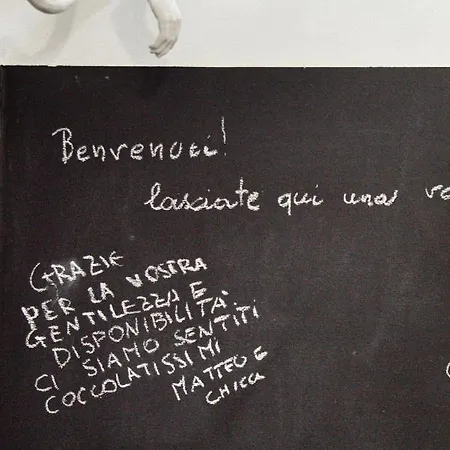 Benvenuti!
lasciate qui una
GRAZIE
PER LA VOSTRA
GENTILEZZA E
DISPONIBILITÀ.
CI SIAMO SENTITI
COCCOLATISSIMI
MATTEO E
CHICCA